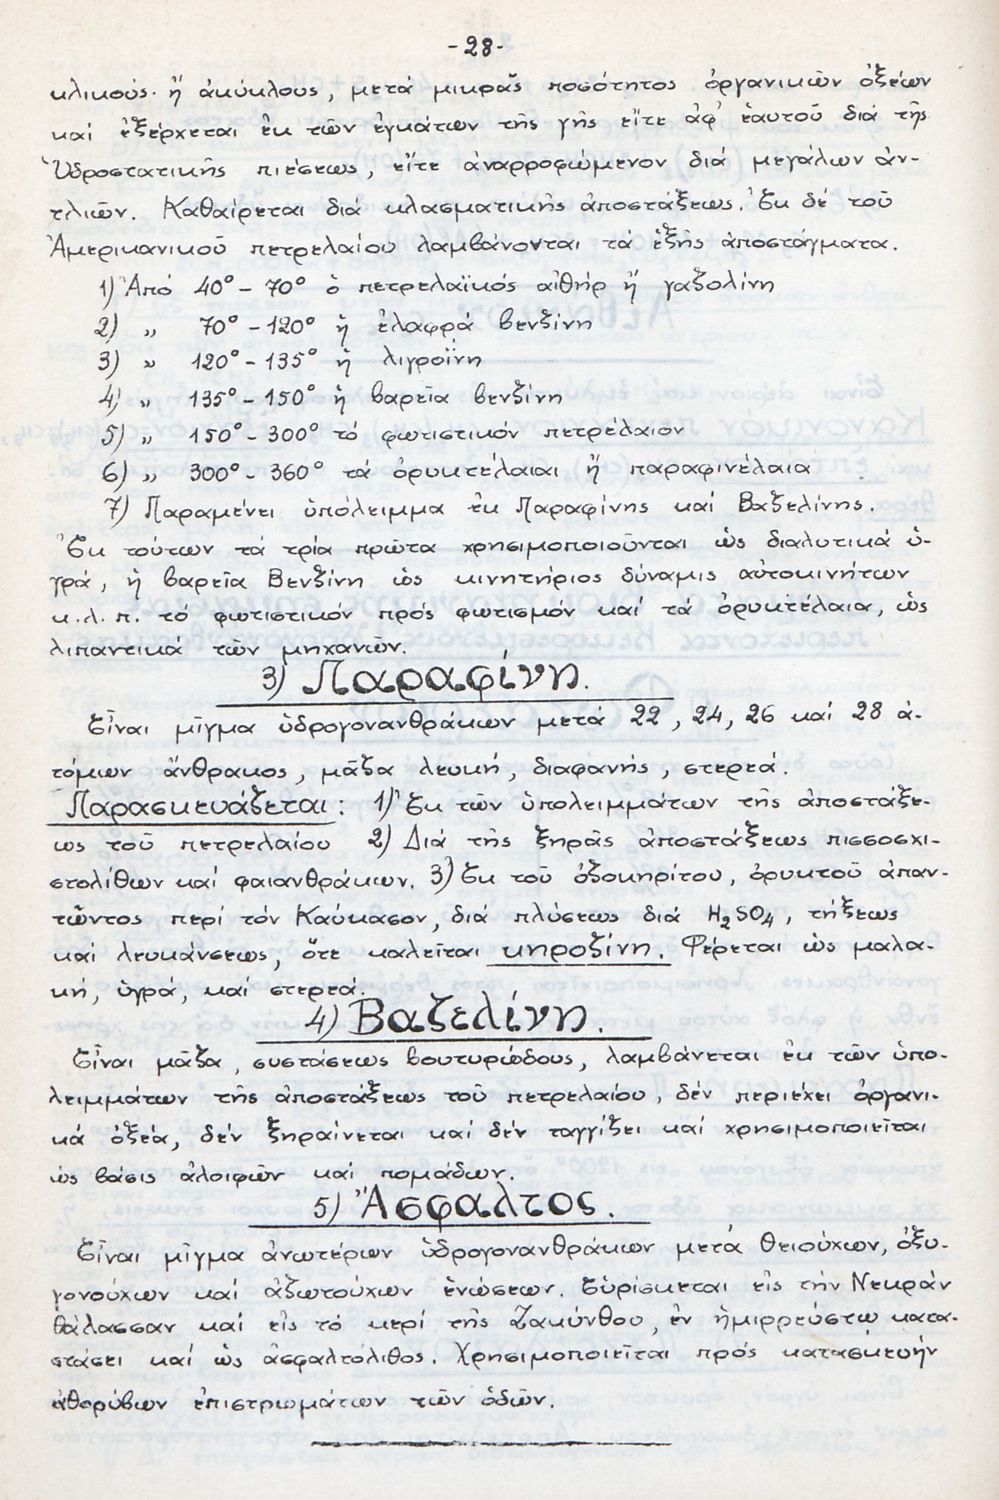 -28-
κλικούς· ἤ ἀκύκλους, μετά μικρᾶς ποσότητος ὀργανικῶν ὀξέων
καί ἐξέρχεται ἐκ τῶν ἐγκάτων τῆς γῆς εἴτε ἀφ' ἑαυτοῦ διά τῆς
Ὑδροστατικῆς πιέσεως, εἴτε ἀναρροφώμενον διά μεγάλων ἀν-
τλιῶν. Καθαίρεται διά κλασματικῆς ἀποστάξεως. Ἐκ δέ τοῦ
Ἀμερικανικοῦ πετρελαίου λαμβάνονται τά ἑξῆς ἀποστάγματα.
1) Ἀπό 40° - 70° ὁ πετρελαϊκός αἰθήρ ἤ γαζολίνη
2) „ 70° - 120° ἡ ἐλαφρά βενζίνη
3) „ 120° - 135° ἡ λιγροΐνη
4) „ 135° - 150° ἡ βαρεῖα βενζίνη
5) „ 150° - 300° τό φωτιστικόν πετρέλαιον
6) „ 300° - 360° τά ὀρυκτέλαιαι ἤ παραφινέλαια
7) Παραμένει ὑπόλειμμα ἐκ Παραφίνης καί Βαζελίνης.
Ἐκ τούτων τά τρία πρῶτα χρησιμοποιοῦνται ὡς διαλυτικά ὑ-
γρά, ἡ βαρεῖα Βενζίνη ὡς κινητήριος δύναμις αὐτοκινήτων
κ.λ.π. τό φωτιστικόν πρός φωτισμόν καί τά ὀρυκτέλαια, ὡς
λιπαντικά τῶν μηχανῶν.
3) Παραφίνη.
Εἶναι μῖγμα ὑδρογονανθράκων μετά 22, 24, 26 καί 28 ἀ-
τόμων ἄνθρακος, μᾶζα λευκή, διαφανής, στερεά.
Παρασκευάζεται: 1) Ἐκ τῶν ὑπολειμμάτων τῆς ἀποστάξε-
ως τοῦ πετρελαίου 2) Διά τῆς ξηρᾶς ἀποστάξεως πισσοσχι-
στολίθων καί φαιανθράκων. 3) Ἐκ τοῦ ὀζοκηρίτου, ὀρυκτοῦ ἀπαν-
τῶντος περί τόν Καύκασον, διά πλύσεως διά H₂SO₄, τήξεως
καί λευκάνσεως, ὅτε καλεῖται κηροζίνη. Φέρεται ὡς μαλα-
κή, ὑγρά, καί στερεά.
4) Βαζελίνη.
Εἶναι μᾶζα, συστάσεως βουτυρώδους, λαμβάνεται ἐκ τῶν ὑπο-
λειμμάτων τῆς ἀποστάξεως τοῦ πετρελαίου, δέν περιέχει ὀργανι-
κά ὀξέα, δέν ξηραίνεται καί δέν ταγγίζει καί χρησιμοποιεῖται
ὡς βάσις ἀλοιφῶν καί πομάδων.
5) Ἄσφαλτος.
Εἶναι μῖγμα ἀνωτέρων ὑδρογονανθράκων μετά θειούχων, ὀξυ-
γονούχων καί ἀζωτούχων ἑνώσεων. Εὑρίσκεται εἰς τήν Νεκράν
θάλασσαν καί εἰς τό κερί τῆς Ζακύνθου, ἐν ἡμιρρεύστῳ κατα-
στάσει καί ὡς ἀσφαλτόλιθος. Χρησιμοποιεῖται πρός κατασκευήν
ἀθορύβων ἐπιστρωμάτων τῶν ὁδῶν.